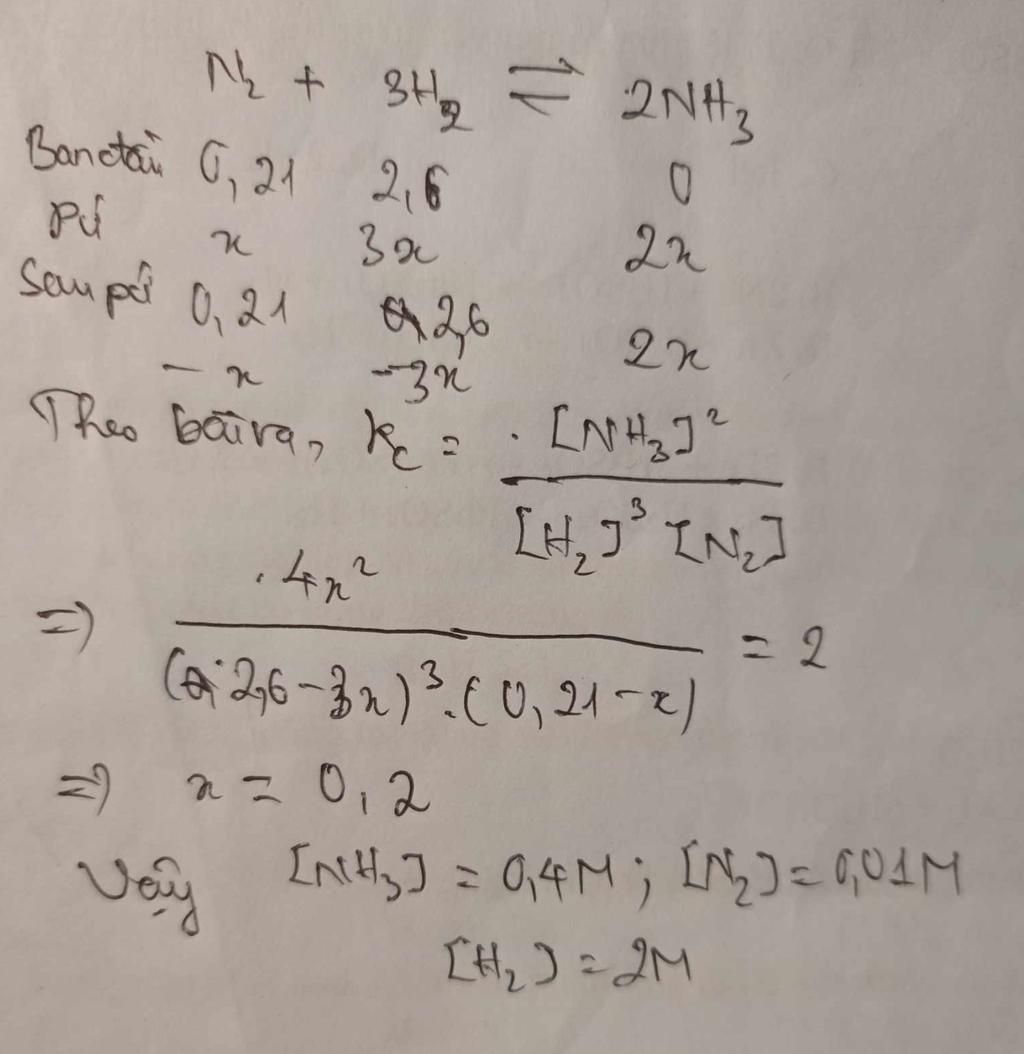 N₂ + 3H₂ ⇌ 2NH₃
Ban đầu 0,21 2,6 0
Pứ x 3x 2x
Sau pứ 0,21 - x 2,6 - 3x 2x
Theo bài ra, Kc = [NH₃]² / [H₂]³ [N₂]
=> 4x² / (2,6 - 3x)³.(0,21 - x) = 2
=> x = 0,2
Vậy [NH₃] = 0,4M ; [N₂] = 0,01M
[H₂] = 2M